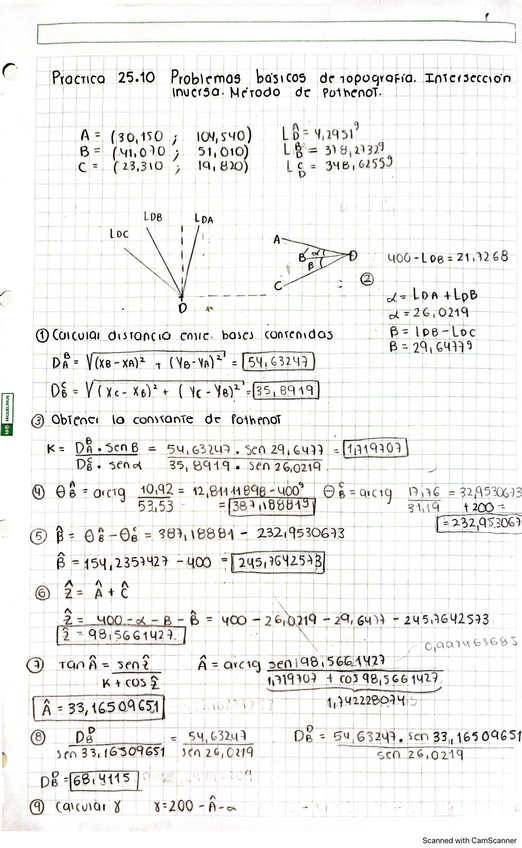 Practica 25.10 Problemas básicos de topografía. Intersección
inversa. Método de Pothenot.
A = (30,150 ; 104,540) L D^A = 4,2951^g
B = (41,070 ; 51,010) L D^B = 378,2732^g
C = (23,310 ; 19,820) L D^C = 348,6255^g
LDC LDB LDA
D
A
B α D
β
C
②
400 - LDB = 21,7268
α = LDA + LDB
α = 26,0219
β = LDB - LDC
β = 29,6477^g
① Calcular distancia entre bases contenidas
D_A^B = √(XB - XA)² + (YB - YA)² = 54,63247
D_B^C = √(XC - XB)² + (YC - YB)² = 35,8919
③ Obtener la constante de Pothenot
K = D_A^B · sen B / D_B^C · sen α = 54,63247 · sen 29,6477 / 35,8919 · sen 26,0219 = 1,719707
④ θ_B^A = arctg 10,92 / 53,53 = 12,81111898 - 400^g = 387,18881^g θ_B^C = arctg 17,76 / 31,19 = 32,9530673 + 200 = 232,953067
⑤ B̂ = θ_B^A - θ_B^C = 387,18881 - 232,9530673
B̂ = 154,2357427 - 400 = 245,7642573
⑥ ẑ = Â + Ĉ
ẑ = 400 - α - β - B̂ = 400 - 26,0219 - 29,6477 - 245,7642573
ẑ = 98,5661427.
⑦ Tan Â = sen ẑ / K + cos ẑ Â = arctg sen 98,5661427 / 1,719707 + cos 98,5661427
1,742228074
Â = 33,16509651
⑧ D_B^D / sen 33,16509651 = 54,63247 / sen 26,0219 D_B^D = 54,63247 · sen 33,16509651 / sen 26,0219
D_B^D = 68,4115
⑨ Calcular γ γ = 200 - Â - α
MIQUELRIUS
Scanned with CamScanner